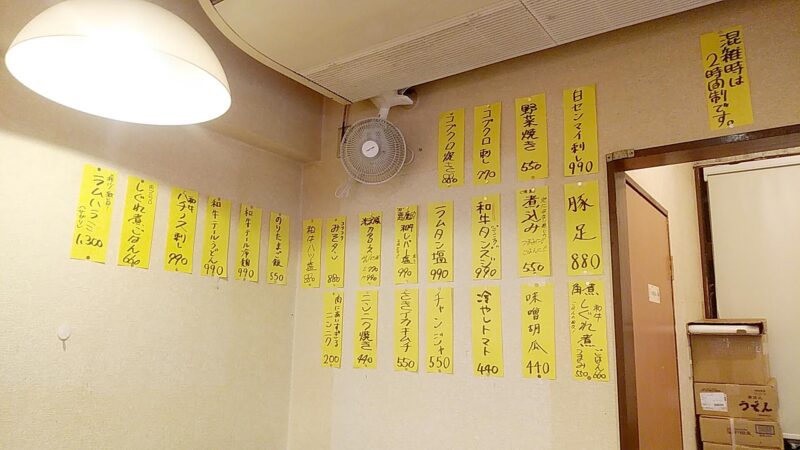 混雑時は
2時間制です。
白センマイ刺し
990
野菜焼き
550
コブクロ刺し
790
コブクロ焼き
豚足
880
煮込み
550
和牛タンスジ
990
ラムタン塩
990
990
みそタン
880
和牛ハツ塩
のりたまご飯
550
和牛テール冷麺
990
和牛テールうどん
990
ハチノス刺し
990
しぐれ煮ごはん
660
ラムハラミ
1,300
角煮
和牛
しぐれ煮
ごはん
660
つまみ
550
味噌胡瓜
440
冷やしトマト
440
チャンジャ
550
さきイカキムチ
550
ニンニク焼き
440
肉にあいすぎる
ニンニク
200
うどん